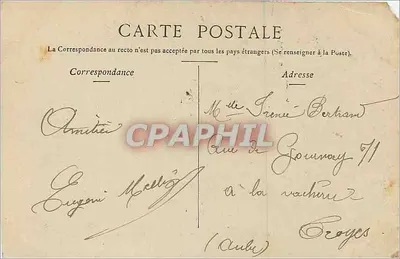 CARTE POSTALE
La Correspondance au recto n'est pas acceptée par tous les pays étrangers (Se renseigner à la Poste).
Correspondance
Adresse
Amitiés
Eugéni
Mlle Irénée Bertrand
rue de Gournay 71
à la vacherie
Troyes
(Aube)
CPAPHIL